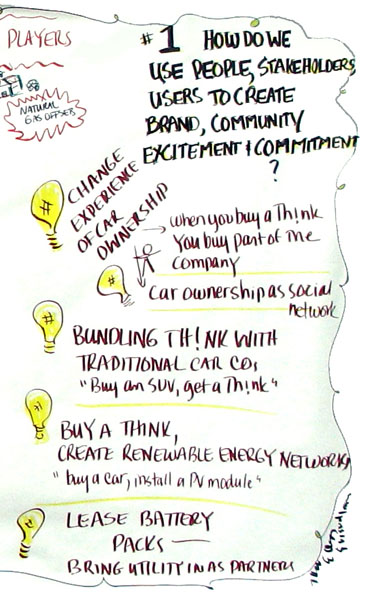 PLAYERS
NATURAL
GAS OFFSETS
#1 HOW DO WE
USE PEOPLE, STAKEHOLDERS,
USERS TO CREATE
BRAND, COMMUNITY
EXCITEMENT & COMMITMENT
?
#
CHANGE
EXPERIENCE
OF CAR
OWNERSHIP
when you buy a Th!nk
You buy part of the
company
#
Car ownership as social
network
#
BUNDLING TH!NK WITH
TRADITIONAL CAR CO,
"Buy an SUV, get a Th!nk"
BUY A THINK,
CREATE RENEWABLE ENERGY NETWORKS
"buy a car, install a PV module"
LEASE BATTERY
PACKS —
BRING UTILITY IN AS PARTNERS